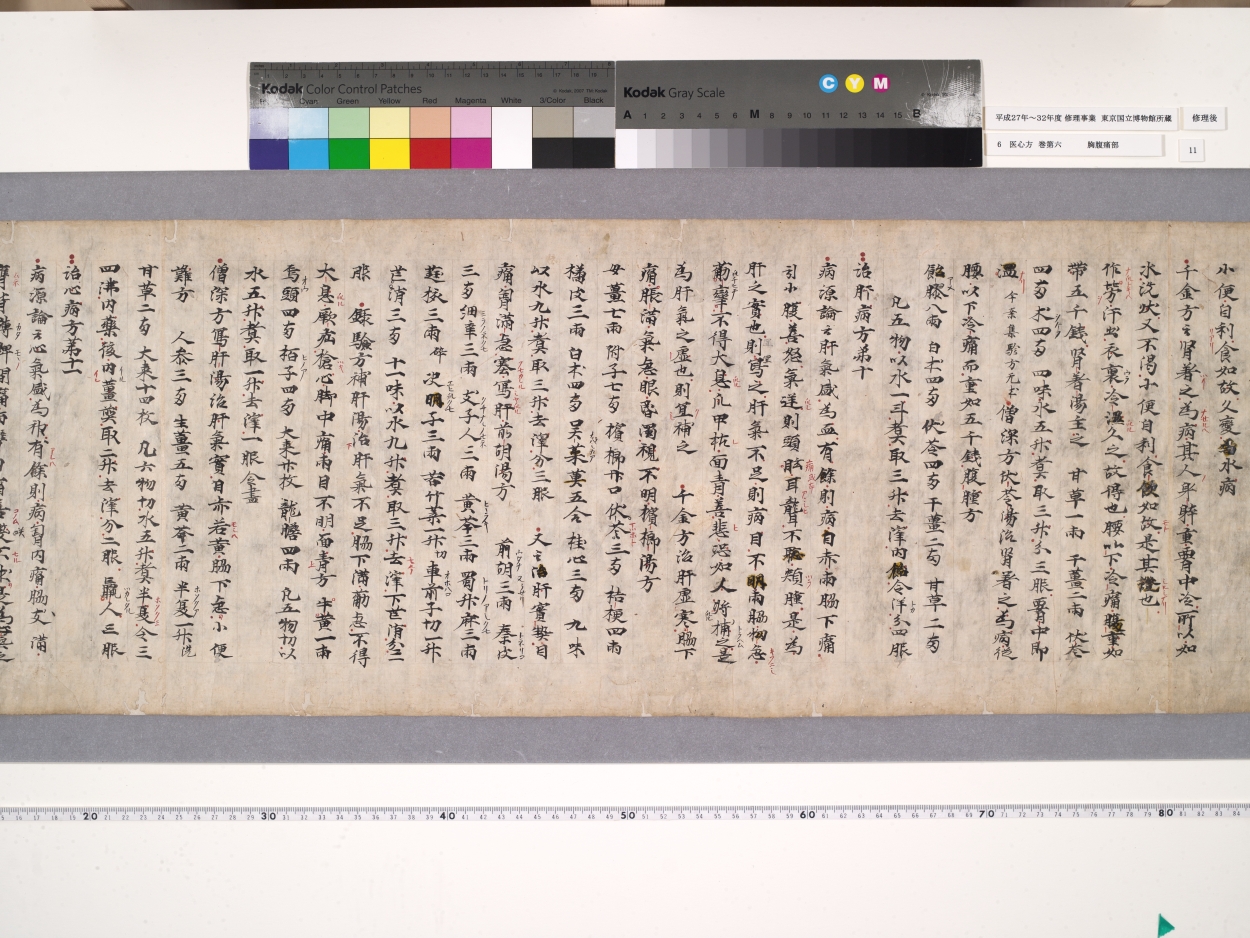 Kodak Color Control Patches
© Kodak, 2007. TM: Kodak
Cyan
Green
Yellow
Red
Magenta
White
3/Color
Black
Kodak Gray Scale
C Y M
A 1 2 3 4 5 6 M 8 9 10 11 12 13 14 15 B
平成27年～32年度 修理事業 東京国立博物館所蔵
修理後
6 医心方 巻第六 胸腹痛部
11
小便自利食如故久變為水病
千金方云腎著之為病其人身體重腰中冷所以如
水洗状又不渇小便自利食飲如故是其證也
作労汗出衣裏冷濕久之故得也腰以下冷痛腹重如
帯五千銭腎着湯主之 甘草一両 干薑二両 伏苓
四分朮四分 四味水五升煮取三升分三服腰中即
温 今案集験方尤 僧深方伏苓湯治腎著之為病従
腰以下冷痛而重如五千銭腹腫方
飴膠八両 白朮四分 伏苓四分 干薑二分 甘草二分
凡五物以水一斗煮取三升去滓内飴令洋分四服
治肝病方第十
病源論云肝氣盛為血有餘則病目赤両脇下痛
引小腹善怒氣逆則頭眩耳聾不聡頬腫是為
肝之實也則寫之肝氣不足則病目不明両脇拘急
筋攣不得大息爪甲枯面青善悲恐如人将捕之是
為肝氣之虚也則宜補之 千金方治肝虚寒脇下
痛脹満氣急眼昏濁視不明檳榔湯方
母薑七両 附子七分 檳榔廿口 伏苓三分 桔梗四両
橘皮三両 白朮四分 呉茱萸五合 桂心三分 九味
以水九升煮取三升去滓分三服 又云治肝實熱目
痛胸満急塞寫肝前胡湯方 前胡三両 秦皮
三分 細辛三両 支子人三両 黄芩三両 蜀升麻三両
蕤核三両碎 决明子三両 苦竹葉一升切 車前子切一升
芒消三分 十一味以水九升煮取三升去滓下芒消分三
服 録験方補肝湯治肝氣不足脇下満筋急不得
大息厥疝搶心脚中痛両目不明面青方 牛黄一両
烏頭四分 栢子四分 大棗廿枚 龍膽四両 凡五物切以
水五升煮取一升去滓一服合盡
僧深方寫肝湯治肝氣實目赤若黄脇下急小便
難方 人参三分 生薑五分 黄芩二両 半夏一升洗
甘草二分 大棗十四枚 凡六物切水五升煮半夏令三
四沸内藥後内薑煎取二升去滓分二服羸人三服
治心病方第十一
病源論云心氣盛為神有餘則病胸内痛脇支満
20 30 40 50 60 70 80